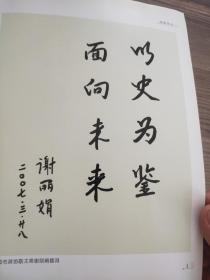 以史为鉴
面向未来
谢丽娟
二〇〇七·三·廿八